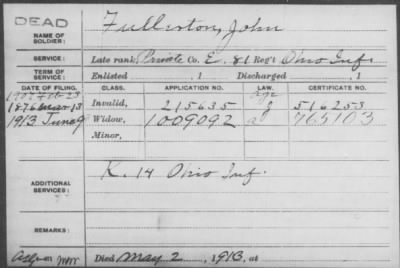 DEAD
NAME OF SOLDIER: Fullerton, John
SERVICE: Late rank, Private Co. E, 81 Reg't Ohio Inf.
TERM OF SERVICE: Enlisted , 1 Discharged , 1
DATE OF FILING. CLASS. APPLICATION NO. CERTIFICATE NO.
1907 Feb 23 Age
1876 Mar 13 Invalid, 215635 516253
1913 June 9 Widow, 1009092 765103
Minor,
ADDITIONAL SERVICES: K. 14 Ohio Inf.
REMARKS:
Died May 2, 1913, at